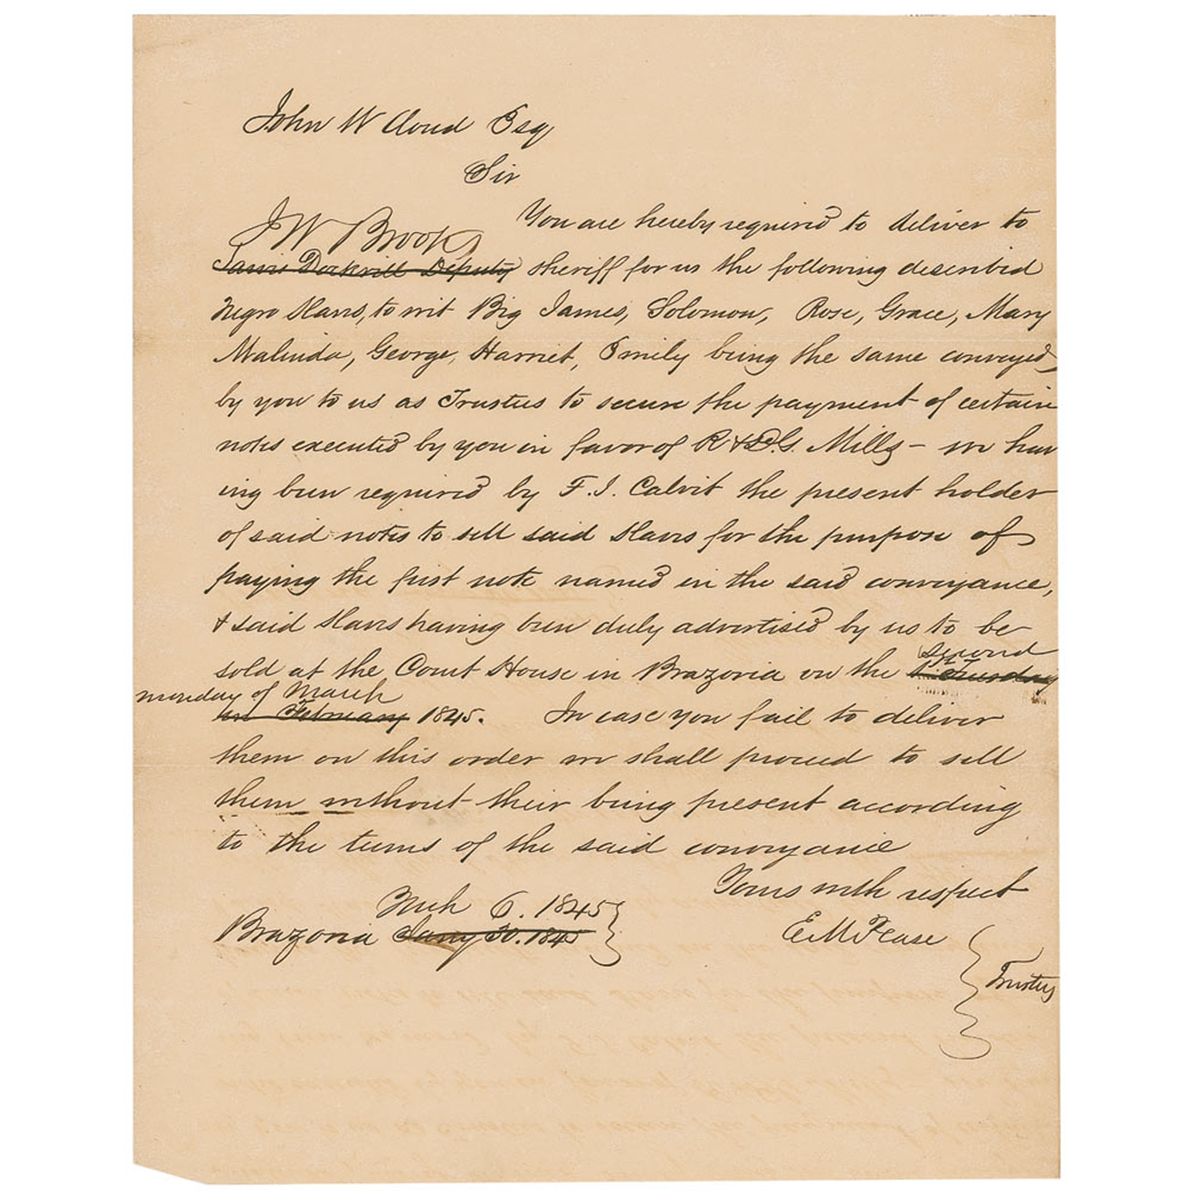 John W Cloud Esq
Sir
You are hereby required to deliver to
J W Brooks
James Dockrill Deputy sheriff for us the following described
Negro Slaves, to wit Big James, Solomon, Rose, Grace, Mary
Malinda, George, Harriet, Emily being the same conveyed
by you to us as Trustees to secure the payment of certain
notes executed by you in favor of R & D. G. Mills – we hav
ing been required by F. J. Calvit the present holder
of said notes to sell said slaves for the purpose of
paying the first note named in the said conveyance,
& said slaves having been duly advertised by us to be
second
sold at the Court House in Brazoria on the 1st Tuesday
monday of March
in February 1845. In case you fail to deliver
them on this order we shall proceed to sell
them without their being present according
to the terms of the said conveyance
Yours with respect
Mch 6. 1845
Brazoria Jany 30. 1845
E M Pease
Trustees